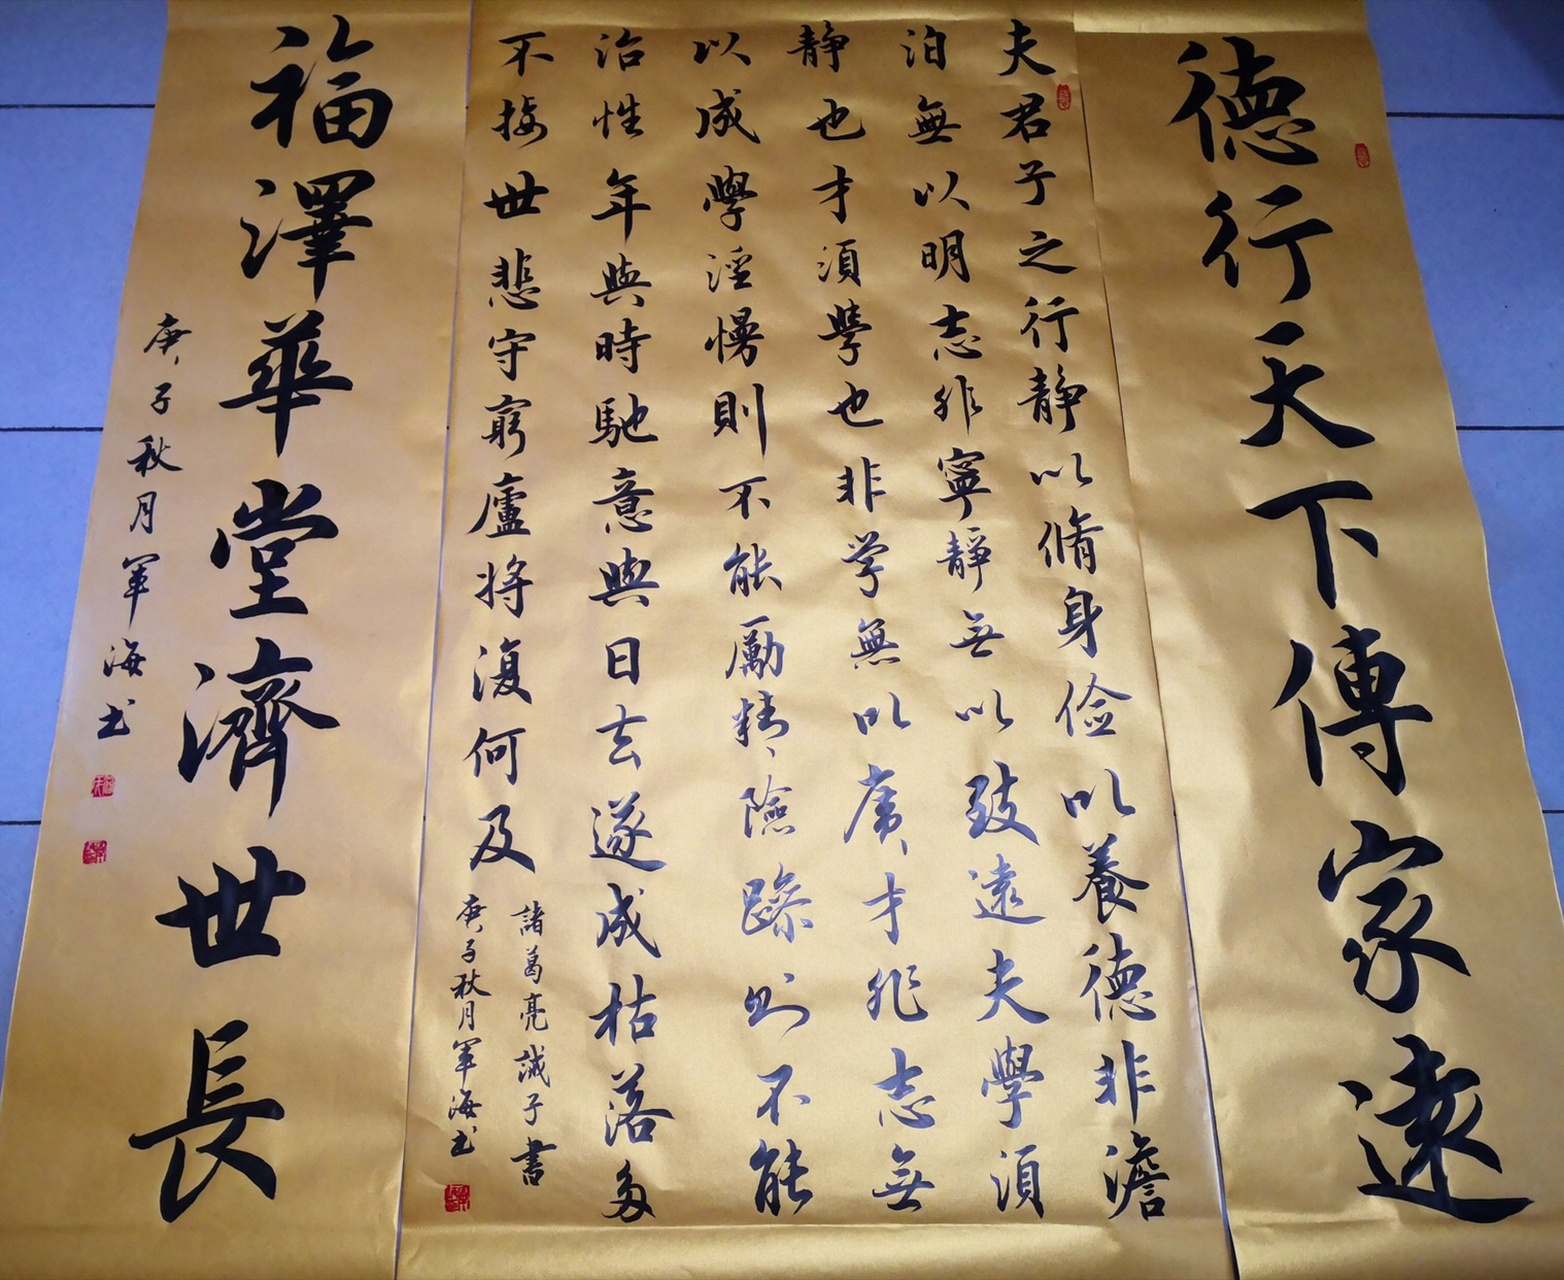 德行天下傳家遠
夫君子之行静以脩身俭以養德非澹
泊無以明志非寧靜無以致遠夫學須
静也才須學也非学無以廣才非志無
以成學淫慢則不能勵精險躁则不能
治性年與時馳意與日去遂成枯落多
不接世悲守窮廬将復何及
諸葛亮誡子書
庚子秋月軍海书
福澤華堂濟世長
庚子秋月軍海书